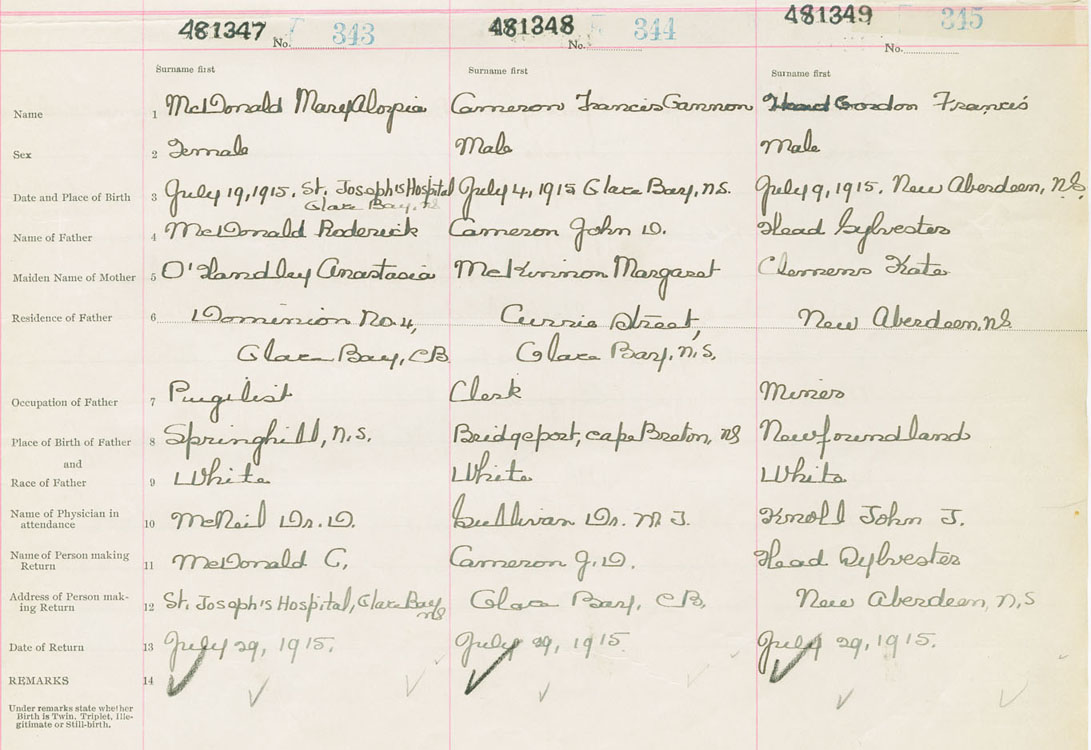 481347 No. 343 481348 No. 344 481349 No. 345
Surname first Surname first Surname first
Name 1 McDonald Mary Aloysia Cameron Francis Cannon Head Gordon Francis
Sex 2 Female Male Male
Date and Place of Birth 3 July 19, 1915. St. Joseph's Hospital July 4, 1915 Glace Bay, N.S. July 9, 1915. New Aberdeen, N.S.
Glace Bay, N.S.
Name of Father 4 McDonald Roderick Cameron John D. Head Sylvester
Maiden Name of Mother 5 O'Handley Anastasia McKinnon Margaret Clemens Kate
Residence of Father 6 Dominion No. 4, Currie Street, New Aberdeen, N.S.
Glace Bay, CB Glace Bay, N.S.
Occupation of Father 7 Pugilist Clerk Miner
Place of Birth of Father 8 Springhill, N.S. Bridgeport, Cape Breton, NS Newfoundland
and
Race of Father 9 White White White
Name of Physician in
attendance 10 McNeil Dr. D. Sullivan Dr. M J. Knoll John J.
Name of Person making
Return 11 McDonald C. Cameron J. D. Head Sylvester
Address of Person mak-
ing Return 12 St. Joseph's Hospital, Glace Bay NS Glace Bay, CB. New Aberdeen, N,S
Date of Return 13 July 29, 1915. July 29, 1915. July 29, 1915.
REMARKS 14
Under remarks state whether
Birth is Twin, Triplet, Ille-
gitimate or Still-birth.